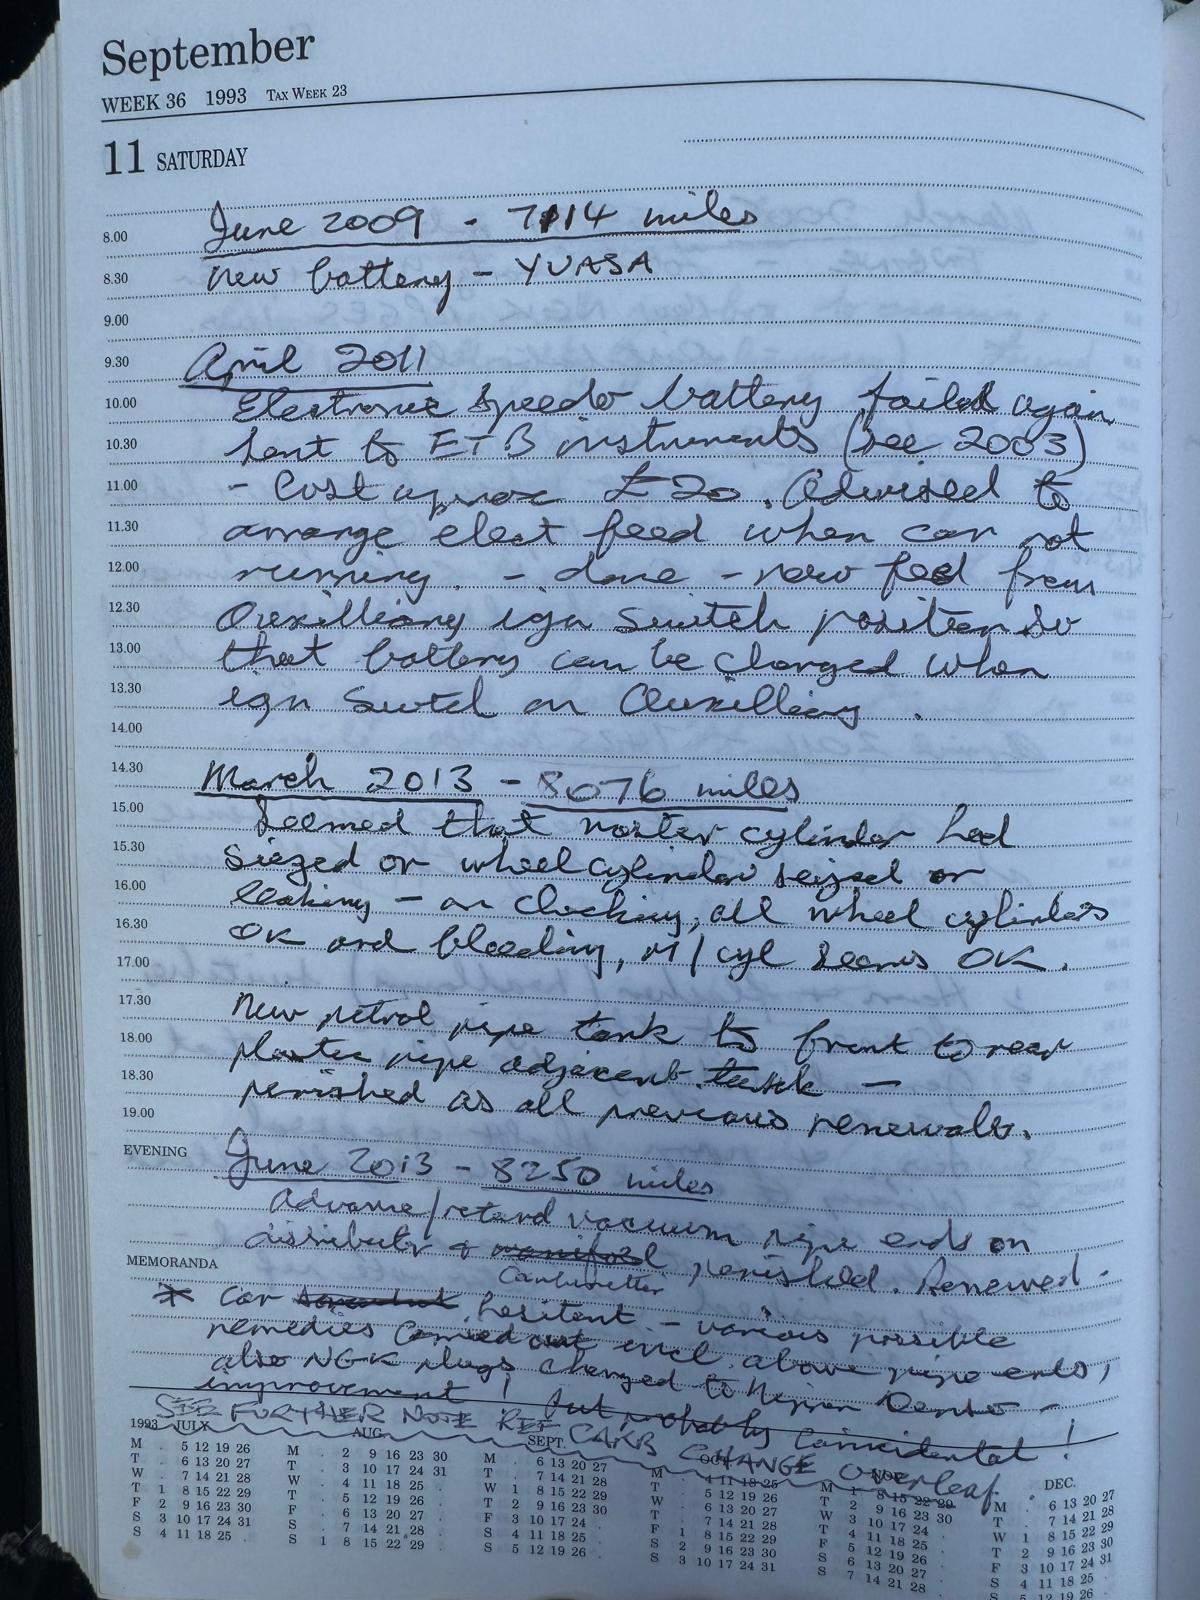 September
WEEK 36 1993 TAX WEEK 23
11 SATURDAY
8.00 June 2009 - 7114 miles
8.30 New battery - YUASA
9.00
9.30 April 2011
10.00 Electronic speedo battery failed again
10.30 sent to ETB instruments (see 2003)
11.00 - Cost aprox £20. Advised to
11.30 arrange elect feed when car not
12.00 running. - done - now feed from
12.30 Auxilliary ign switch position so
13.00 that battery can be charged when
13.30 ign switch on Auxilliary.
14.00
14.30 March 2013 - 8076 miles
15.00 Seemed that master cylinder had
15.30 siezed or wheel cylinder seized or
16.00 leaking - on checking, all wheel cylinders
16.30 OK and bleeding, M/cyl seems OK.
17.00
17.30 New petrol pipe tank to front to rear
18.00 plastic pipe adjacent tank -
18.30 perished as all previous renewals.
19.00
EVENING June 2013 - 8250 miles
Advance/retard vacuum pipe ends on
distributor & manifold perished. Renewed.
MEMORANDA Carburetter
* car hesitent - various possible
remedies carried out incl. above pipe ends,
also NGK plugs changed to Nippon Denso -
improvement! but probably coincidental!
SEE FURTHER NOTE REF CARB CHANGE OVERLEAF.
1993 JULY AUG SEPT. OCT NOV DEC.
M . 5 12 19 26 M . 2 9 16 23 30 M . 6 13 20 27 M . 4 11 18 25 M 1 8 15 22 29 M . 6 13 20 27
T . 6 13 20 27 T . 3 10 17 24 31 T . 7 14 21 28 T . 5 12 19 26 T 2 9 16 23 30 T . 7 14 21 28
W . 7 14 21 28 W . 4 11 18 25 . W 1 8 15 22 29 W . 6 13 20 27 W 3 10 17 24 . W 1 8 15 22 29
T 1 8 15 22 29 T . 5 12 19 26 . T 2 9 16 23 30 T . 7 14 21 28 T 4 11 18 25 . T 2 9 16 23 30
F 2 9 16 23 30 F . 6 13 20 27 . F 3 10 17 24 . F 1 8 15 22 29 F 5 12 19 26 . F 3 10 17 24 31
S 3 10 17 24 31 S . 7 14 21 28 . S 4 11 18 25 . S 2 9 16 23 30 S 6 13 20 27 . S 4 11 18 25 .
S 4 11 18 25 . S 1 8 15 22 29 . S 5 12 19 26 . S 3 10 17 24 31 S 7 14 21 28 . S 5 12 19 26 .